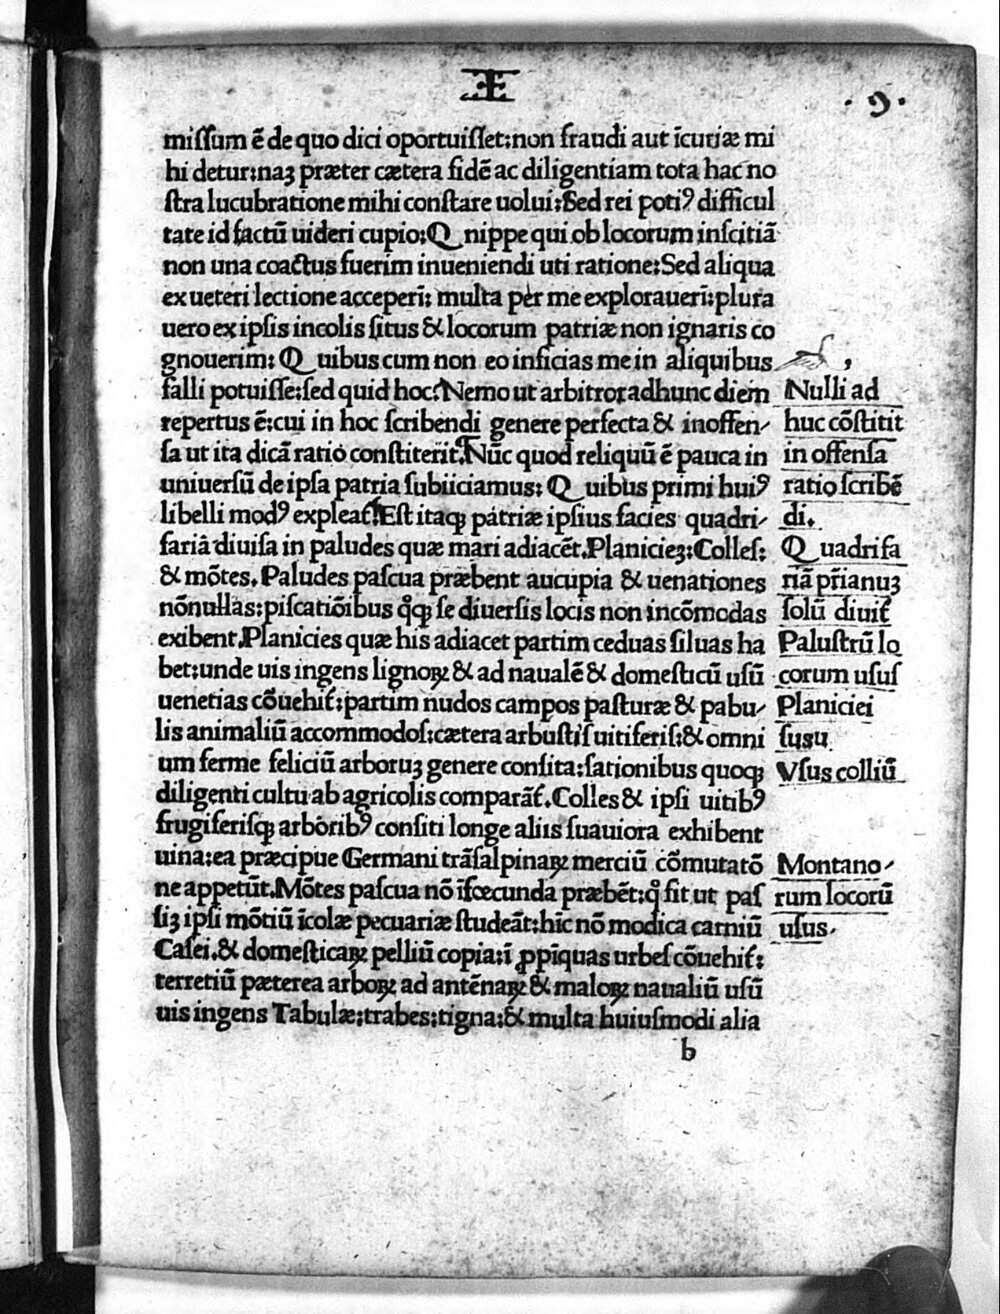 .9.
miſſum ē de quo dici oportuiſſet:non fraudi aut īcuriæ mi
hi detur:naꝫ præter cætera fidē ac diligentiam tota hac no
ſtra lucubratione mihi conſtare uolui:Sed rei potiꝰ difficul
tate id factū uideri cupio:Quippe qui ob locorum inſcitiā
non una coactus fuerim inueniendi uti ratione:Sed aliqua
ex ueteri lectione acceperī: multa per me explorauerī:plura
uero ex ipſis incolis ſitus & locorum patriæ non ignaris co
gnouerim: Quibus cum non eo inficias me in aliquibus
falli potuiſſe:ſed quid hoc?Nemo ut arbitror adhunc diem
repertus ē:cui in hoc ſcribendi genere perfecta & inoffen-
ſa ut ita dicā ratio conſtiterit.Nūc quod reliquū ē pauca in
uniuerſū de ipſa patria ſubiiciamus: Quibus primi huiꝰ
libelli modꝰ expleat̄.Eſt itaqꝫ patriæ ipſius facies quadri-
fariā diuiſa in paludes quæ mari adiacēt.Planicieꝫ:Colleſ:
& mōtes.Paludes paſcua præbent aucupia & uenationes
nōnullas:piſcatiōibus qͦqꝫ ſe diuerſis locis non incōmodas
exibent.Planicies quæ his adiacet partim ceduas ſiluas ha
bet:unde uis ingens lignoꝝ & ad naualē & domeſticū uſū
uenetias cōuehit̄:partim nudos campos paſturæ & pabu-
lis animaliū accommodoſ:cætera arbuſtiſ uitiferiſ:& omni
um ferme feliciū arboruꝫ genere conſita:ſationibus quoqꝫ
diligenti cultu ab agricolis comparāt̄.Colles & ipſi uitibꝰ
frugiferiſqꝫ arboribꝰ conſiti longe aliis ſuauiora exhibent
uina:ea præcipue Germani trāſalpinaꝝ merciū cōmutatō
ne appetūt.Mōtes paſcua nō īfœcunda præbēt:qͦ fit ut paſ
ſiꝫ ipſi mōtiū īcolæ pecuariæ ſtudeāt:hīc nō modica carniū
Caſei.& domeſticaꝝ pelliū copia:ī ꝓpīquas urbeſ cōuehit̄:
terretiū pæterea arboꝝ ad antēnaꝝ & maloꝝ naualiū uſū
uis ingens Tabulæ:trabes:tigna:& multa huiuſmodi alia
b
Nulli ad
huc cōſtitit
in offenſa
ratio ſcribē
di.
Quadrifa
riā p̄rianuꝫ
ſolū diuit̄
Paluſtrū lo
corum uſuſ
Planiciei
ſuſu
Vſus colliū
Montano-
rum locorū
uſus.